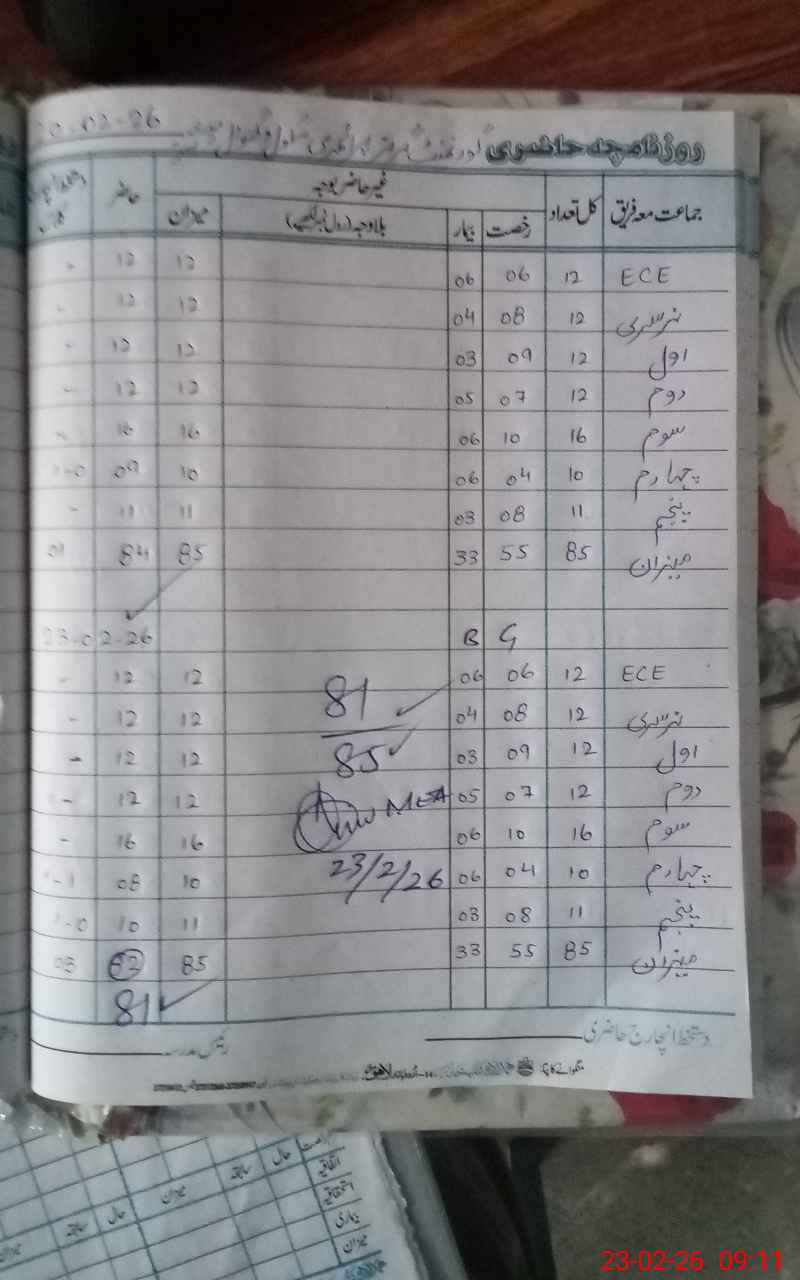 20-02-26
روزنامچہ حاضری گورنمنٹ پرائمری سکول
جماعت معہ فریق کل تعداد غیر حاضر بوجہ حاضر
رخصت بیمار بلاوجہ (رول نمبر لکھیے) میزان
ECE 12 06 06 12 12 -
نرسری 12 08 04 12 12 -
اول 12 09 03 12 12 -
دوم 12 07 05 12 12 -
سوم 16 10 06 16 16 -
چہارم 10 04 06 10 09
پنجم 11 08 03 11 11 -
میزان 85 55 33 85 84 01
G B 23-02-26
ECE 12 06 06 12 12 -
نرسری 12 08 04 12 12 -
اول 12 09 03 12 12 -
دوم 12 07 05 12 12 -
سوم 16 10 06 16 16 -
چہارم 10 04 06 10 08
پنجم 11 08 03 11 10
میزان 85 55 33 85 82 03
81
85
MEA
23/2/26
81
دستخط انچارج حاضری
رئیس مدرسہ
23-02-26 09:11